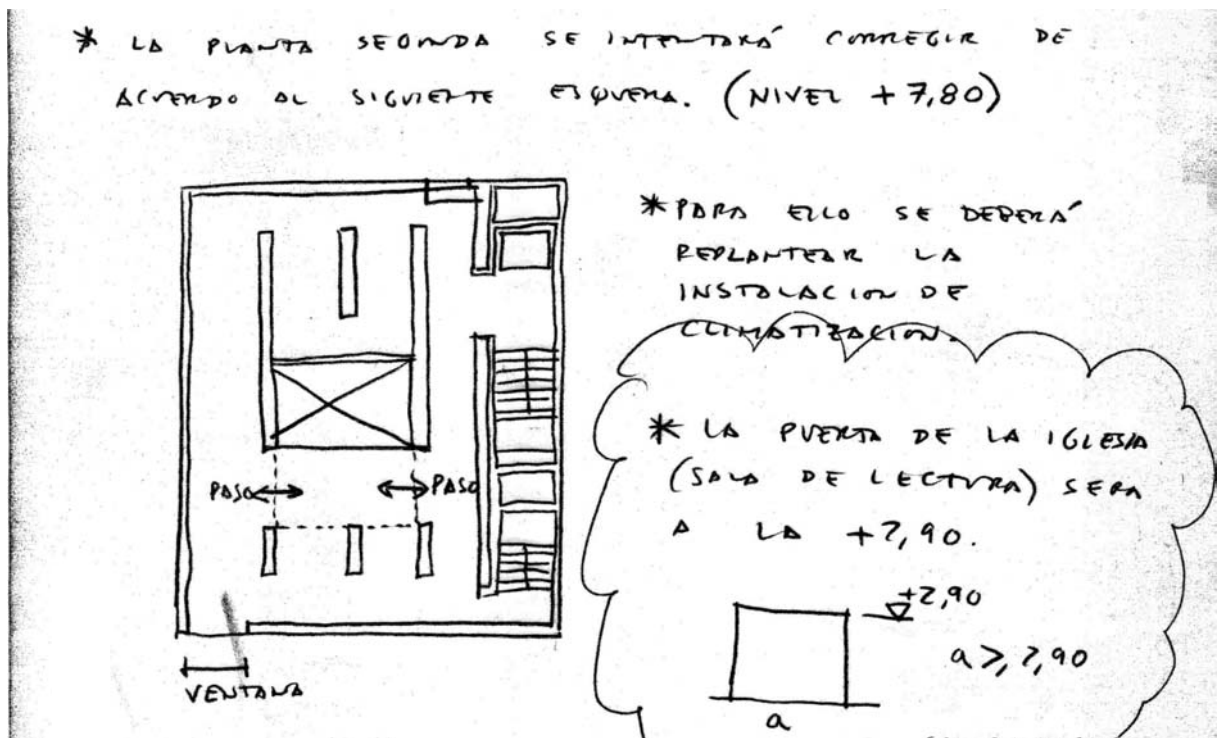 * LA PLANTA SEGUNDA SE INTENTARÁ CORREGIR DE
ACUERDO AL SIGUIENTE ESQUEMA. (NIVEL +7,80)
* PARA ELLO SE DEBERÁ
REPLANTEAR LA
INSTALACION DE
CLIMATIZACION.
* LA PUERTA DE LA IGLESIA
(SALA DE LECTURA) SERA
A LA +2,90.
+2,90
a ≥ 2,90
a
PASO
PASO
VENTANA